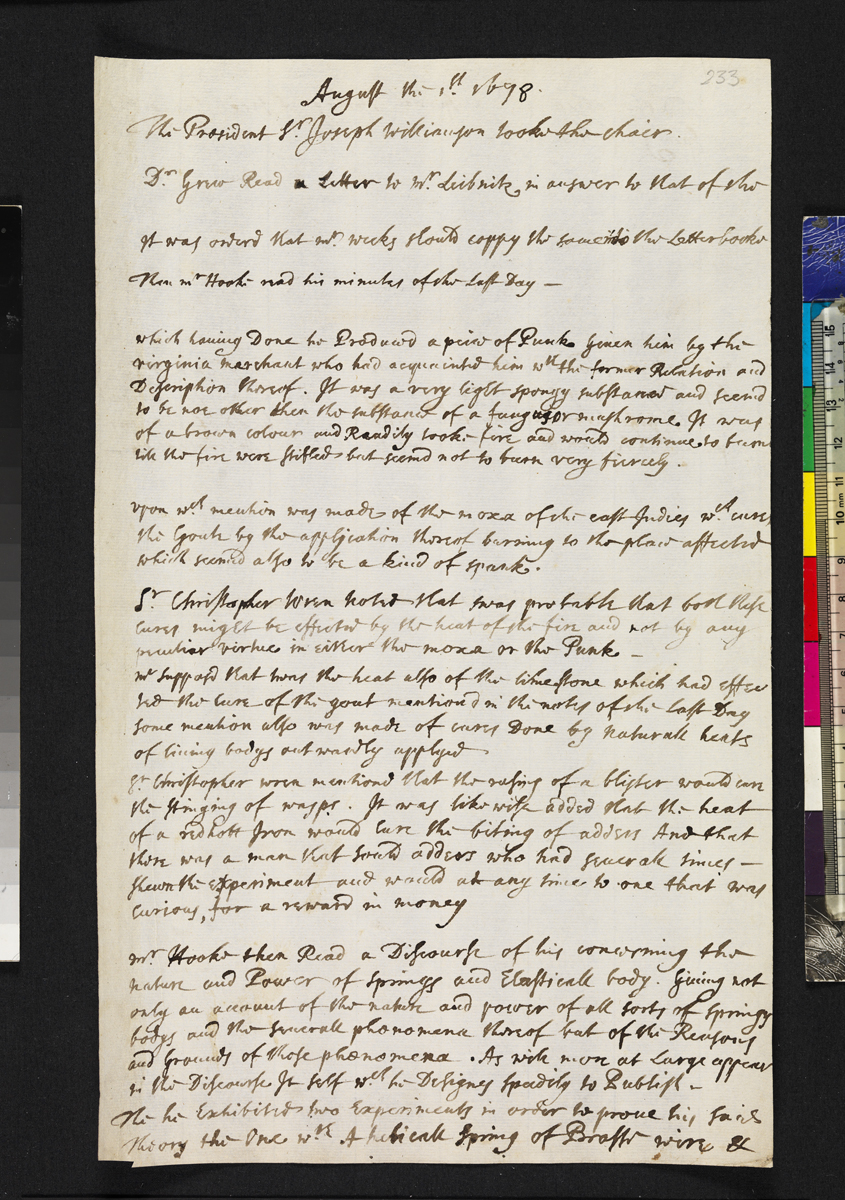 233
August the 1st. 1678.
The President Sr. Joseph Williamson tooke the chair.
Dr. Grew Read a Letter to Mr. Leibnitz in answer to that of the
It was orderd that mr. weeks should coppy the same into the Letterbooke
Then mr Hooke read his minutes of the Last Day —
which having Done he Produced a peice of Punk Given him by the
virginia merchant who had acquainted him wth the former Relation and
Description thereof. It was a very light spongy substance and seemd
to be noe other then the substance of a fungus or mushrome. It was
of a brown colour and Readily tooke fire and would continue to burn
till the fire were stifled but seemd not to burn very fiercely.
upon wch mention was made of the moxa of the east Indies wch. cures
the Goute by the application thereof burning to the place affected
which seemed also to be a kind of spunk.
Sr. Christopher Wren Noted that twas probable that both these
cures might be effected by the heat of the fire and not by any
peculiar virtue in either the moxa or the Punk —
mr supposd that twas the heat also of the limestone which had effec
ted the Cure of the gout mentiond in the notes of the Last Day
some mention also was made of cures Done by naturall heats
of living bodys outwardly applyed
Sr. Christopher wren mentiond that the raising of a blister would cure
the stinging of wasps. It was likewise added that the heat
of a redhott Iron would Cure the biting of adders And that
there was a man that sould adders who had severall times —
shewn the experiment and would at any time to one that was
curious, for a reward in money
mr. Hooke then Read a Discourse of his concerning the
nature and Power of springs and Elasticall body. Giving not
only an account of the nature and power of all sorts of springy
bodys and the Generall phænomena thereof but of the Reasons
and grounds of those phænomena. As will more at Large appear
in the Discourse It self wch he Designes speedily to Publish —
The he Exhibited two Experiments in order to prove his said
Theory the One wth A helicall Spring of Brasse wire &